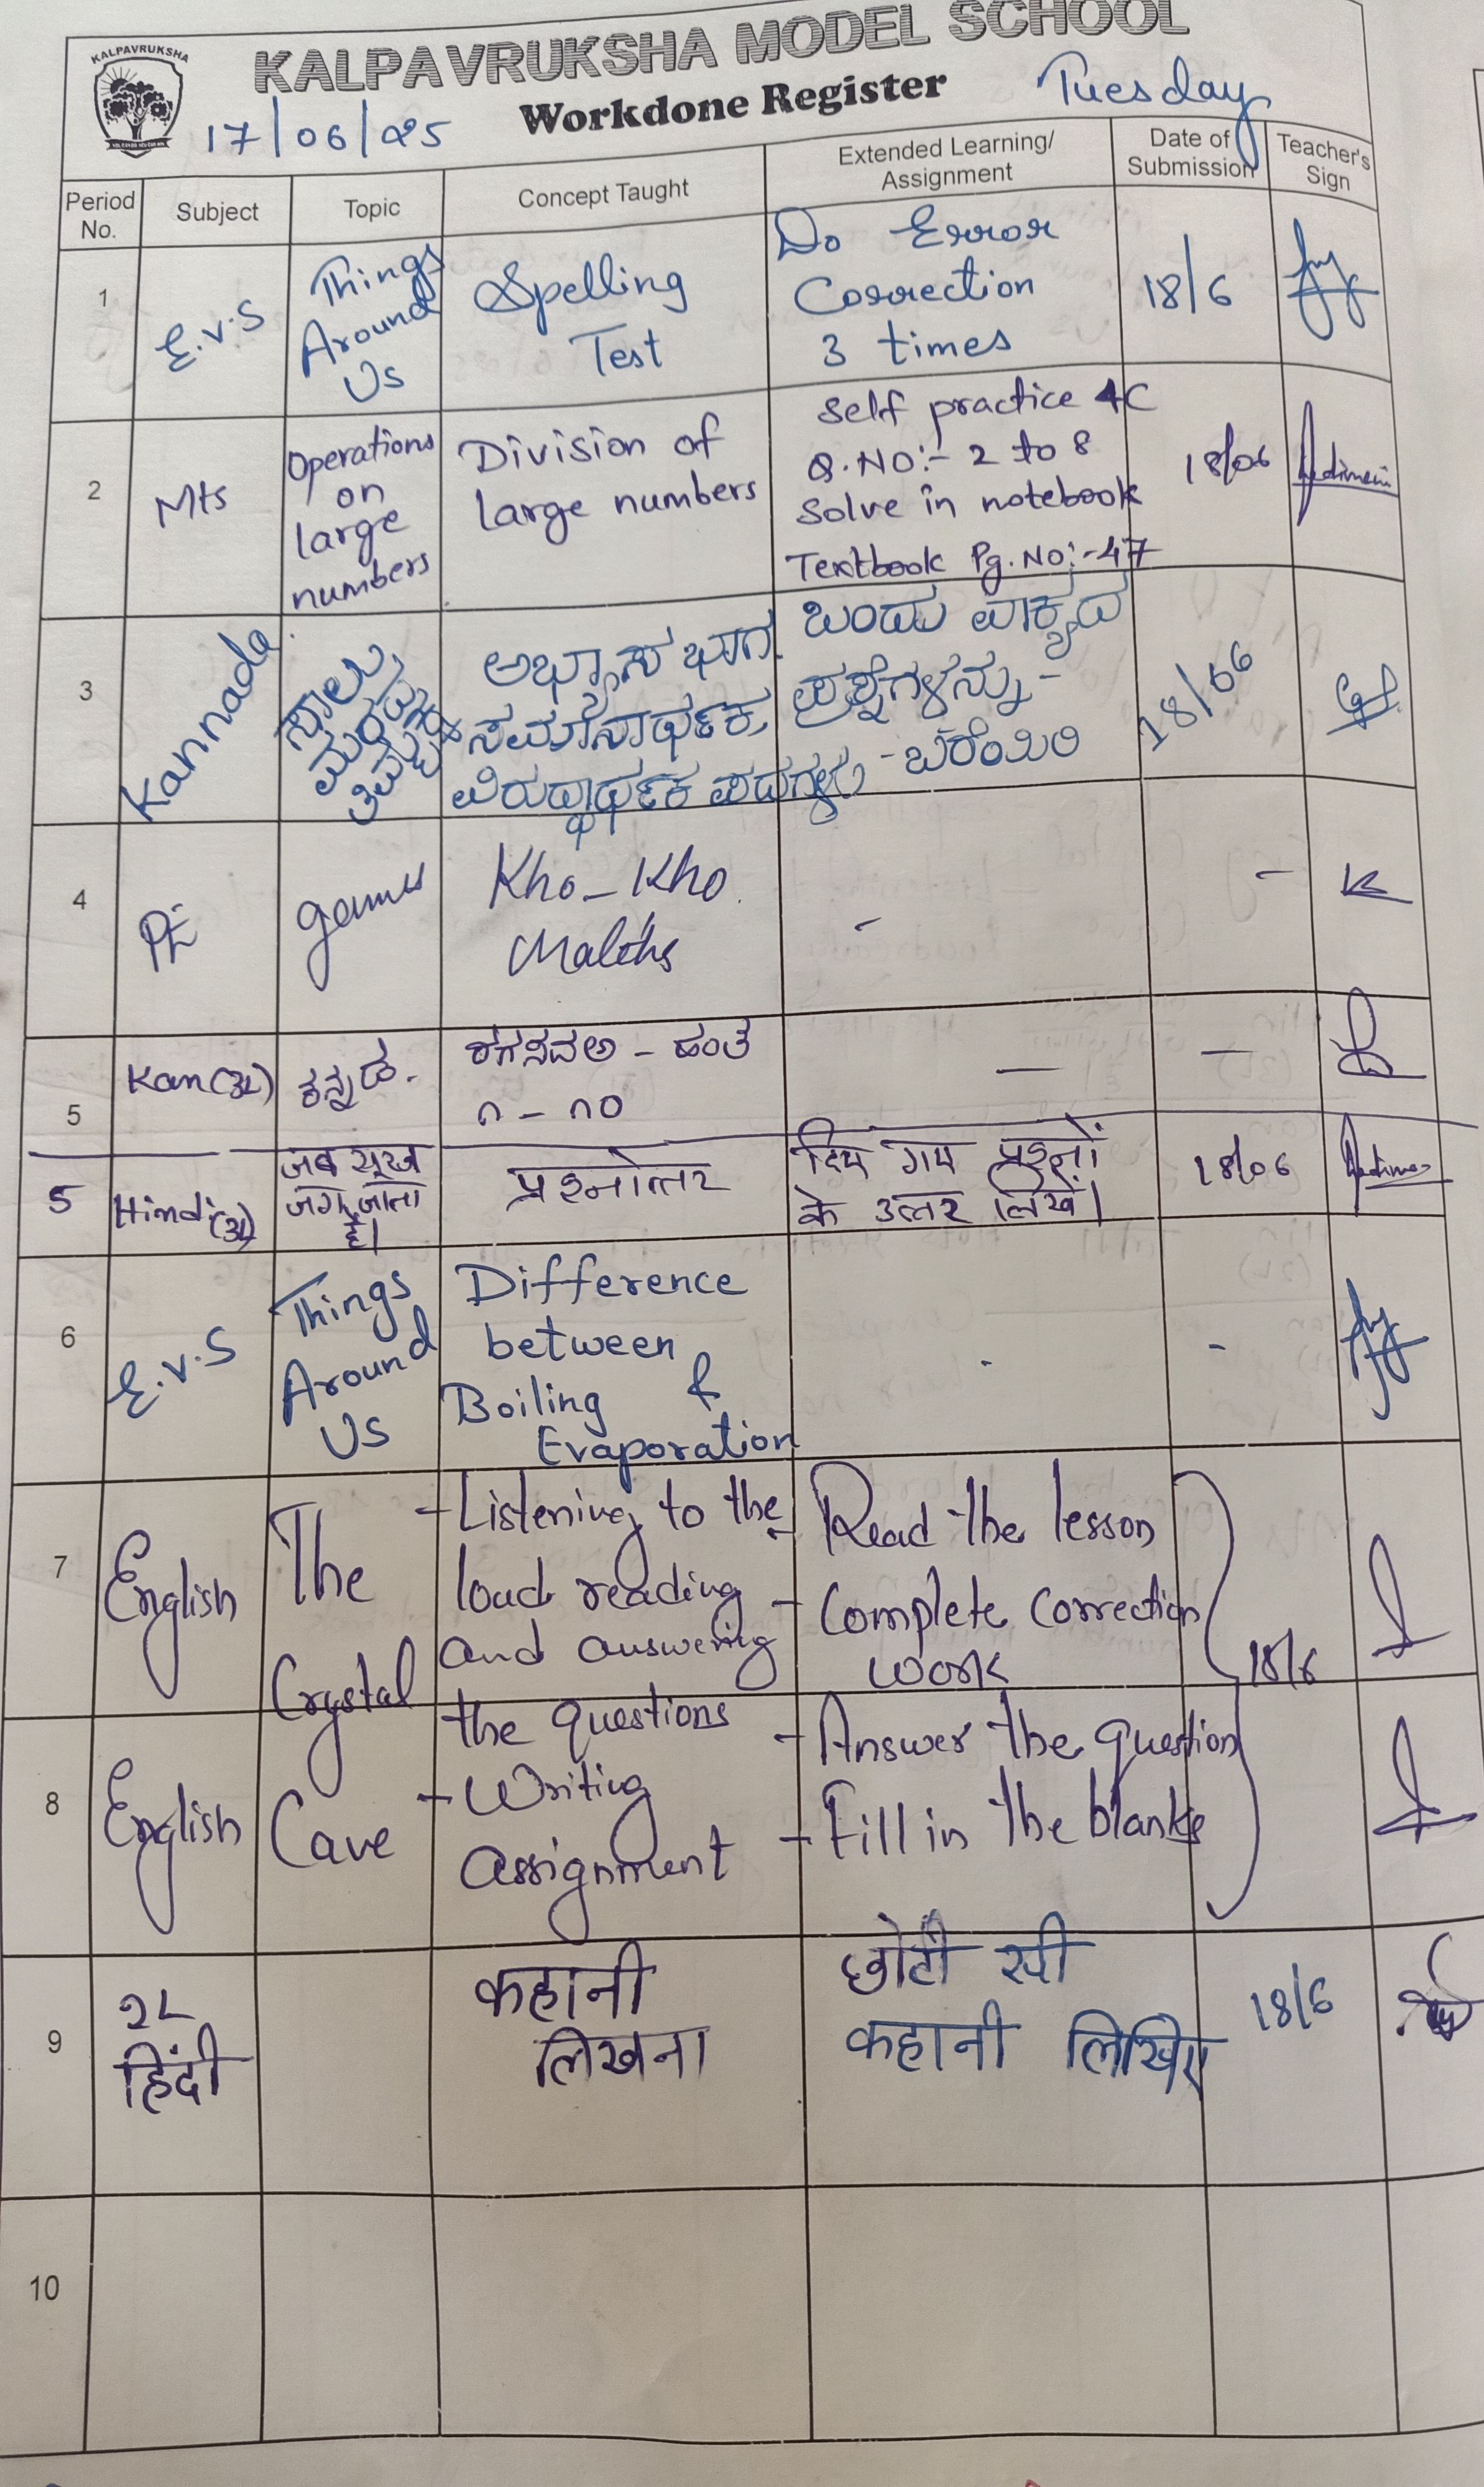 KALPAVRUKSHA
KALPAVRUKSHA MODEL SCHOOL
Workdone Register
Tuesday
17/06/25
Period No.
Subject
Topic
Concept Taught
Extended Learning/
Assignment
Date of
Submission
Teacher's
Sign
1
E.V.S
Things
Around
Us
Spelling
Test
Do Error
Correction
3 times
18/6
2
Mts
Operations
on
large
numbers
Division of
large numbers
Self practice 4C
Q.NO:- 2 to 8
Solve in notebook
Textbook Pg.No:-47
18/06
3
Kannada
ಸಾಲು
ಮರದ
ತಿಮ್ಮಕ್ಕ
ಅಭ್ಯಾಸ ಭಾಗ
ಸಮಾನಾರ್ಥಕ,
ವಿರುದ್ಧಾರ್ಥಕ ಪದಗಳು
ಒಂದು ವಾಕ್ಯದ
ಪ್ರಶ್ನೆಗಳನ್ನು -
- ಬರೆಯಿರಿ
18/06
4
PE
games
Kho-Kho
-
-
5
Kan(3L)
ಕನ್ನಡ.
೧ - ೧೦
—
—
5
Hindi(3L)
जब सूरज
जग जाता
है।
प्रश्नोत्तर
दिए गए प्रश्नों
के उत्तर लिखें।
18/06
6
E.V.S
Things
Around
Us
Difference
between
Boiling &
Evaporation
-
-
7
English
The
Crystal
- Listening to the
loud reading
and answering
- Read the lesson
- Complete correction
work
18/6
8
English
Cave
the questions
- Writing
assignment
- Answer the question
- Fill in the blanks
9
2L
हिंदी
कहानी
लिखना
छोटी सी
कहानी लिखिए
18/6
10